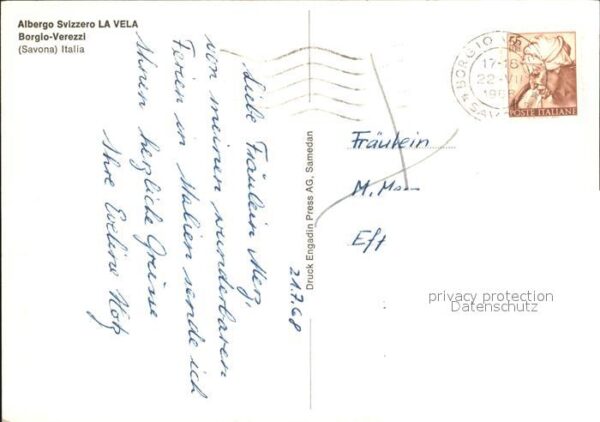 Albergo Svizzero LA VELA
Borgio-Verezzi
(Savona) Italia
21.7.68
Liebe Fräulein Merz,
von meinen wunderbaren
Ferien in Italien sende ich
Ihnen herzliche Grüsse
Ihre Eveline Hotz
Druck Engadin Press AG, Samedan
BORGIO
17-18
22-VII
1968
POSTE ITALIANE
Fräulein
M.
privacy protection
Datenschutz